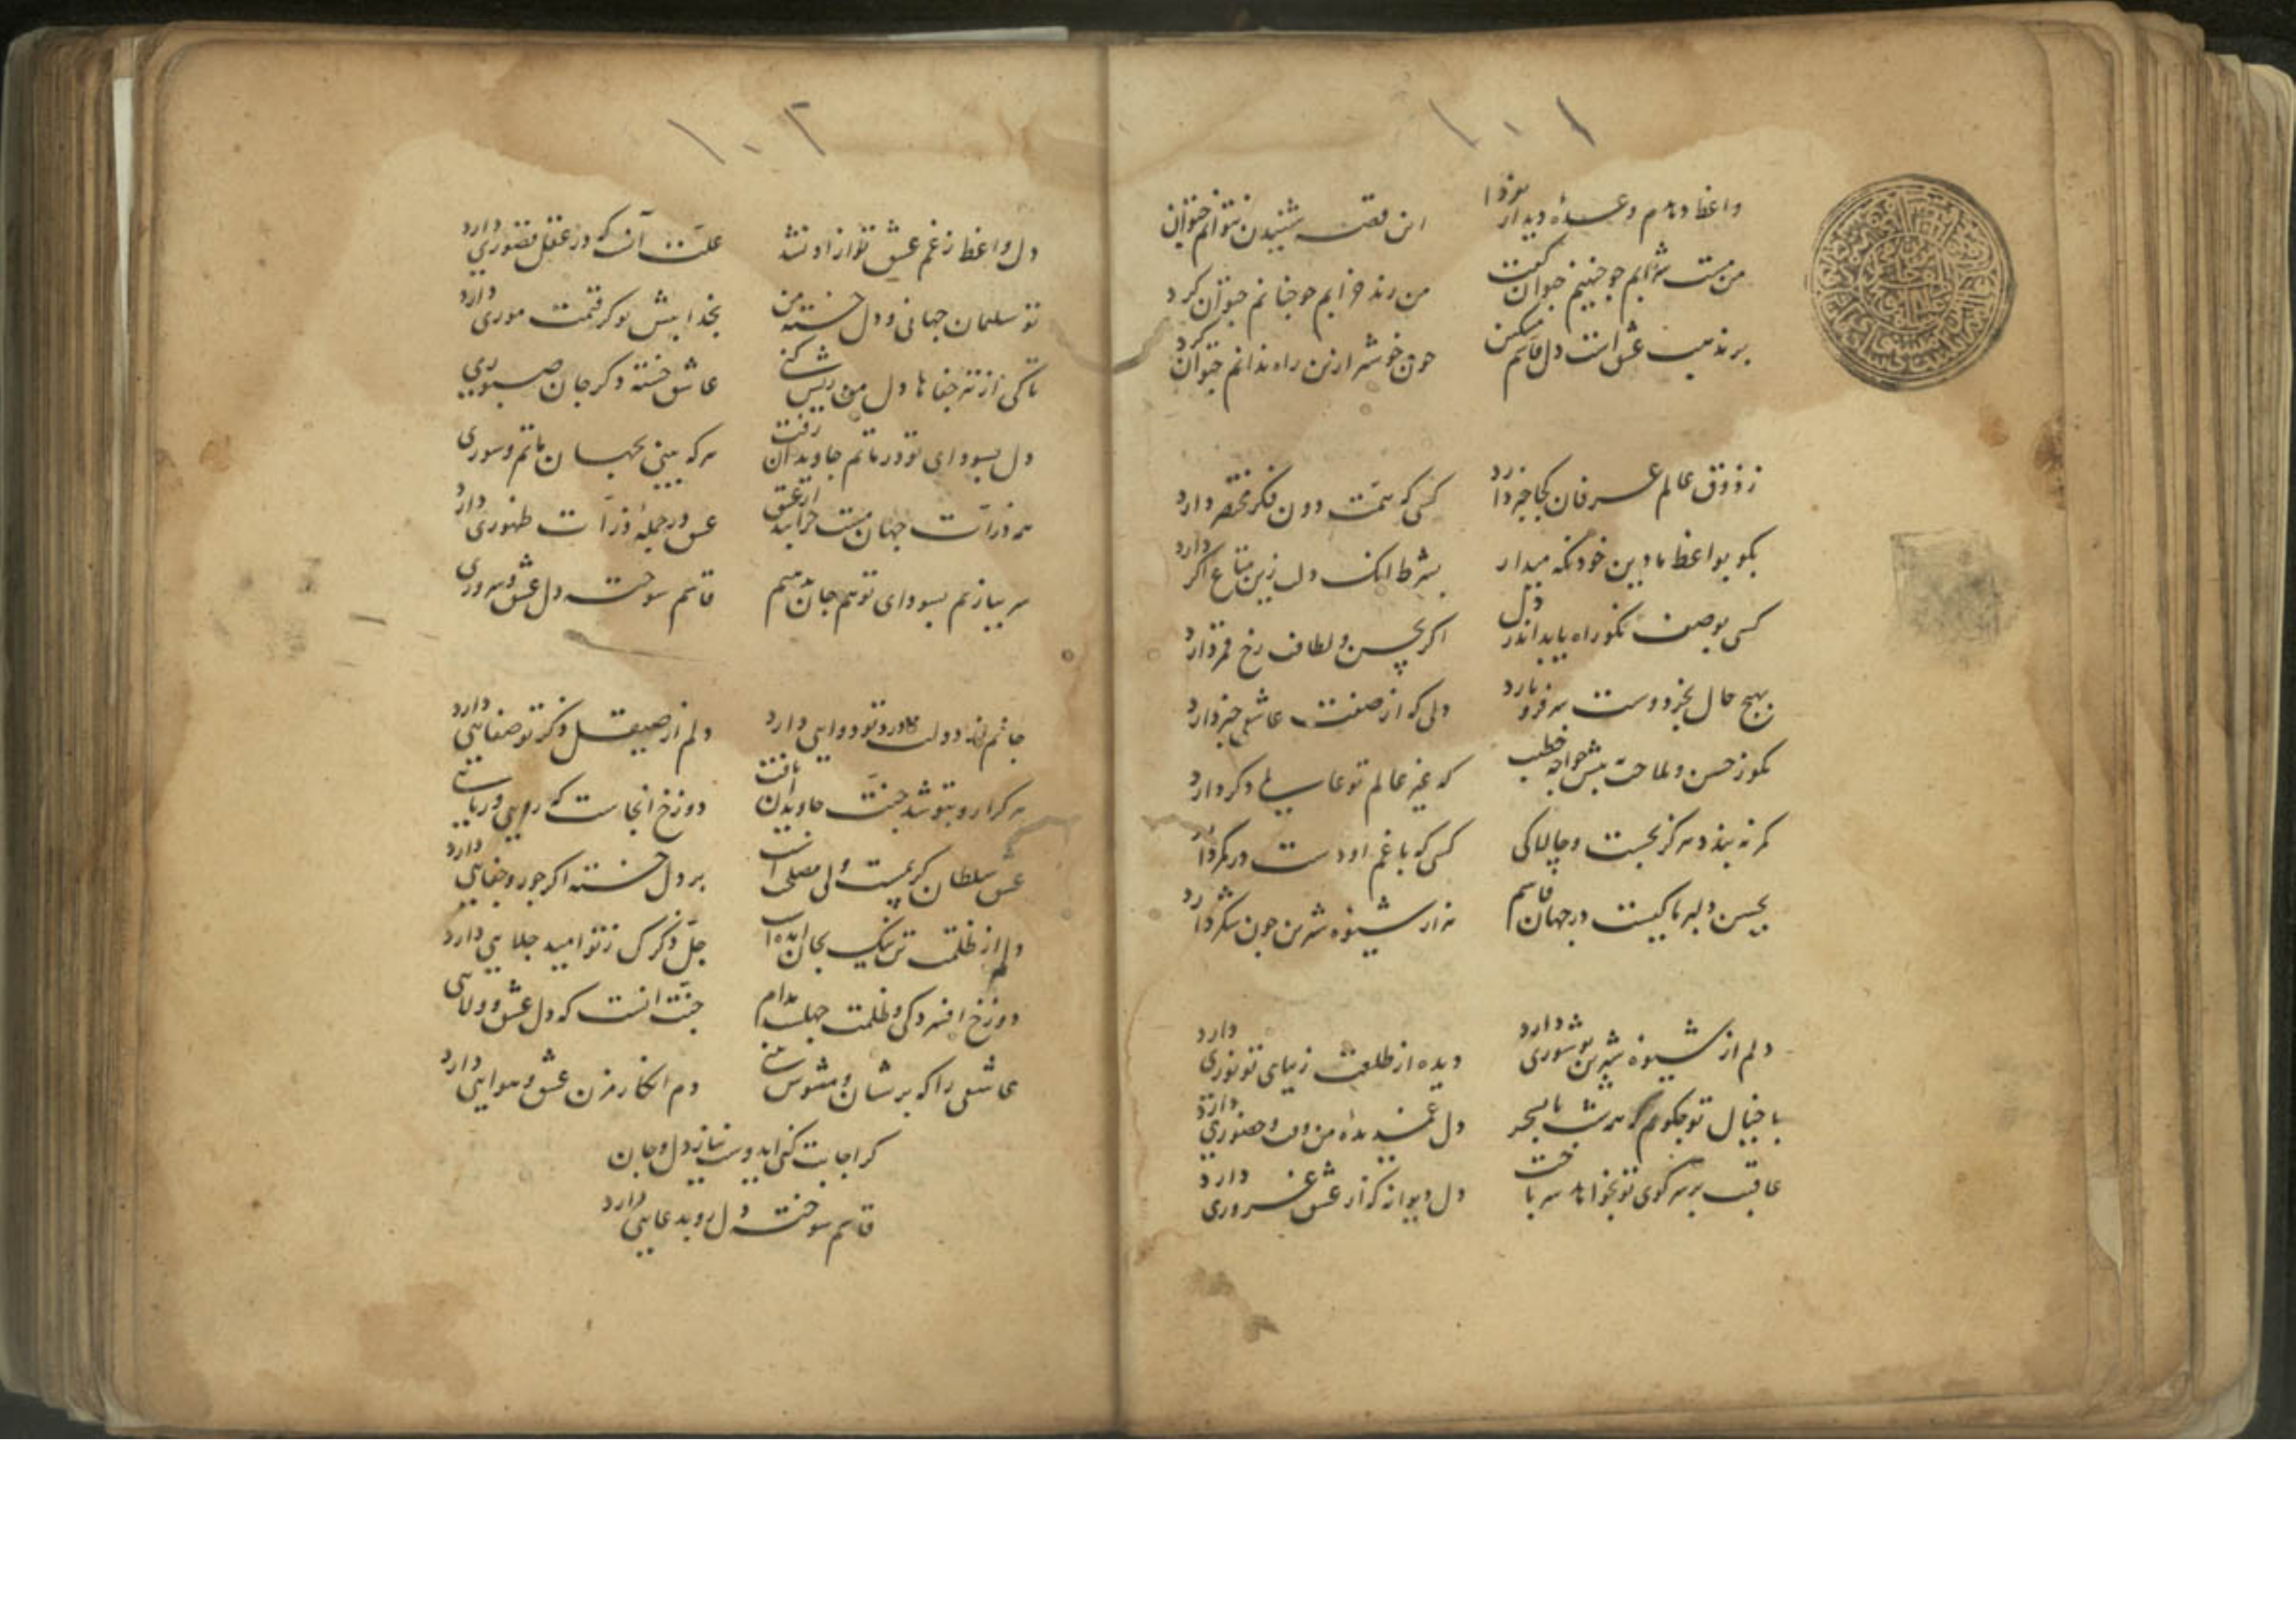 ۱۰۱
واعظ دهدم وعدهٔ دیدار بفردا
این قصه شنیدن نتوانم چتوان کرد
من مست شرابم چو چنینم چتوان گفت
من رند خرابم چو چنانم چتوان کرد
بر مذهب عشق است دل قاسم مسکین
چون خوشتر ازین راه ندانم چتوان کرد
ز ذوق عالم عرفان کجا خبر دارد
کسی که همت دون فکر مختصر دارد
بگو بواعظ ما دین خود نگه میدار
بشرط انک دلت زین متاع اگر دارد
کسی بوصف نکو راه یابد اندر دل
اگر بحسن و لطافت رخ قمر دارد
بهیچ حال بجز دوست سر فرو نارد
دلی که از صفت عاشقی خبر دارد
مگو ز حسن و ملاحت به پیش خواجه خطیب
که غیر عالم تو عالمی دگر دارد
کمر نه بندد هرگز بچست و چالاکی
کسی که با غم او دست در کمر دارد
بحسن دلبر ما کیست در جهان قاسم
هزار شیوه شیرین چون شکر دارد
دلم از شیوه شیرین تو شوری دارد
دیده از طلعت زیبای تو نوری دارد
با خیال تو چگویم که همه شب تا بسحر
دل غمدیدهٔ من ذوق و حضوری دارد
عاقبت بر سر کوی تو بخواهد سر باخت
دل دیوانه که از عشق غروری دارد
۱۰۲
دل واعظ ز غم عشق تو ازاد نشد
علت آنست که در عقل قصوری دارد
تو سلیمان جهانی و دل خسته من
بخدا پیش تو گر قیمت موری دارد
تا کی از تیر جفاها دل من ریش کنی
عاشق خسته دگر جان صبوری
دل بسودای تو در ماتم جاویدان رفت
هر که بینی بجهان ماتم و سوری
همه ذرات جهان مست خرابند از عشق
عشق در جملهٔ ذرات ظهوری دارد
سر ببازنم بسودای تو هم جان بدهم
قاسم سوخته دل عشق و سروری
جانم از دولت درد تو دوایی دارد
دلم از صیقل ذکر تو صفایی دارد
هر کرا رو بتو شد جنت جاویدان یافت
دوزخ انجاست که رویی و ریایی
عشق سلطان کریمست ولی مصلحتست
بر دل خسته اگر جور و جفایی دارد
دلم از ظلمت تن نیک بجان امده است
جل ذکرک ز تو امید جلایی دارد
دوزخ افسردگی و ظلمت جهلست مدام
جنت انست که دل عشق و ولایی
عاشقی را که پریشان و مشوش بینی
دم انکار مزن عشق و هوایی دارد
گر اجابت کنی ایدوست نیاز دل و جان
قاسم سوخته دل روبدعایی دارد